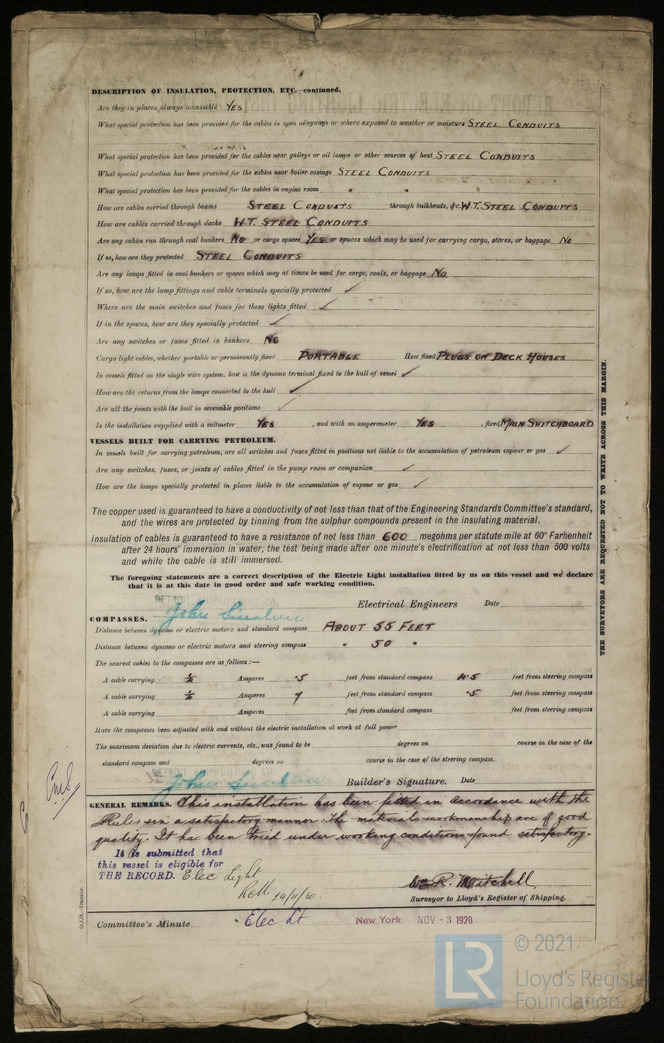 DESCRIPTION OF INSULATION, PROTECTION, ETC.—continued.
Are they in places always accessible YES
What special protection has been provided for the cables in open alleyways or where exposed to weather or moisture STEEL CONDUITS
What special protection has been provided for the cables near galleys or oil lamps or other sources of heat STEEL CONDUITS
What special protection has been provided for the cables near boiler casings STEEL CONDUITS
What special protection has been provided for the cables in engine room " "
How are cables carried through beams STEEL CONDUITS through bulkheads, &c. W.T. STEEL CONDUITS
How are cables carried through decks W.T. STEEL CONDUITS
Are any cables run through coal bunkers NO or cargo spaces YES or spaces which may be used for carrying cargo, stores, or baggage NO
If so, how are they protected STEEL CONDUITS
Are any lamps fitted in coal bunkers or spaces which may at times be used for cargo, coals, or baggage NO
If so, how are the lamp fittings and cable terminals specially protected ✓
Where are the main switches and fuses for these lights fitted ✓
If in the spaces, how are they specially protected ✓
Are any switches or fuses fitted in bunkers NO
Cargo light cables, whether portable or permanently fixed PORTABLE How fixed PLUGS ON DECK HOUSES
In vessels fitted on the single wire system, how is the dynamo terminal fixed to the hull of vessel ✓
How are the returns from the lamps connected to the hull ✓
Are all the joints with the hull in accessible positions ✓
Is the installation supplied with a voltmeter YES, and with an amperemeter YES, fixed MAIN SWITCHBOARD
VESSELS BUILT FOR CARRYING PETROLEUM.
In vessels built for carrying petroleum, are all switches and fuses fitted in positions not liable to the accumulation of petroleum vapour or gas ✓
Are any switches, fuses, or joints of cables fitted in the pump room or companion ✓
How are the lamps specially protected in places liable to the accumulation of vapour or gas ✓
The copper used is guaranteed to have a conductivity of not less than that of the Engineering Standards Committee's standard,
and the wires are protected by tinning from the sulphur compounds present in the insulating material.
Insulation of cables is guaranteed to have a resistance of not less than 600 megohms per statute mile at 60° Farhenheit
after 24 hours' immersion in water, the test being made after one minute's electrification at not less than 500 volts
and while the cable is still immersed.
The foregoing statements are a correct description of the Electric Light installation fitted by us on this vessel and we declare
that it is at this date in good order and safe working condition.
John Electrical Engineers Date
COMPASSES.
Distance between dynamo or electric motors and standard compass ABOUT 55 FEET
Distance between dynamo or electric motors and steering compass " 50 "
The nearest cables to the compasses are as follows:—
A cable carrying ½ Amperes .5 feet from standard compass 4.5 feet from steering compass
A cable carrying ½ Amperes 7 feet from standard compass .5 feet from steering compass
A cable carrying Amperes feet from standard compass feet from steering compass
Have the compasses been adjusted with and without the electric installation at work at full power
The maximum deviation due to electric currents, etc., was found to be degrees on course in the case of the
standard compass and degrees on course in the case of the steering compass.
John Builder's Signature. Date
GENERAL REMARKS. This installation has been fitted in accordance with the
Rules & in a satisfactory manner. The materials & workmanship are of good
quality. It has been tried under working conditions & found satisfactory.
It is submitted that
this vessel is eligible for
THE RECORD. Elec Light
W. R. Mitchell
Surveyor to Lloyd's Register of Shipping.
Committee's Minute Elec Lt New York NOV - 3 1920
THE SURVEYORS ARE REQUESTED NOT TO WRITE ACROSS THIS MARGIN.
© 2021
LR
Lloyd's Register
Foundation